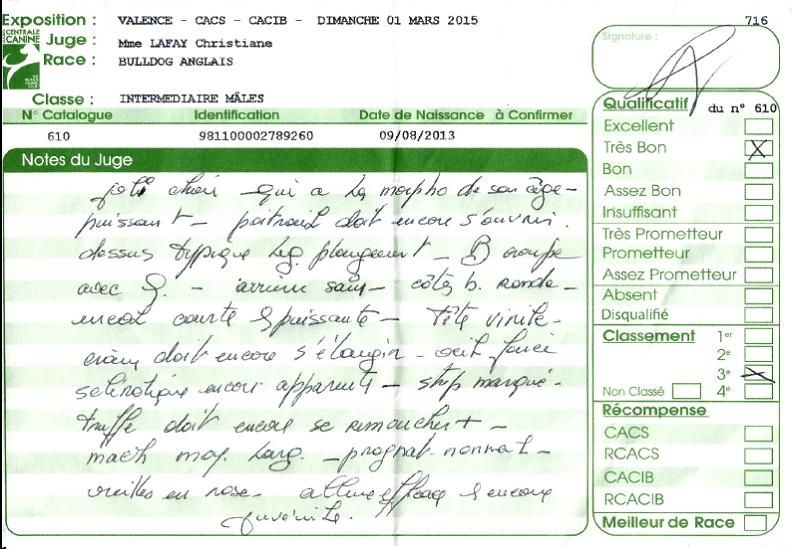 Exposition : VALENCE - CACS - CACIB - DIMANCHE 01 MARS 2015
716
CENTRALE CANINE
Juge : Mme LAFAY Christiane
Race : BULLDOG ANGLAIS
Classe : INTERMEDIAIRE MÂLES
N° Catalogue Identification Date de Naissance à Confirmer
610 981100002789260 09/08/2013
Notes du Juge
joli chien - qui a la morpho de son âge -
puissant - poitrail doit encore s'ouvrir.
dessus typique leg. plongeant - B croupe
avec - arrière sain - côtes b. ronde -
encol courte & puissante - Tête virile -
crâne doit encore s'élargir - oeil foncé
sclérotique encore apparente - stop marqué -
truffe doit encore se remoucher + -
mach moy. larg. - prognat. normal -
oreilles en rose - allure efficace & encore
juvénile.
Signature :
Qualificatif du n° 610
Excellent
Très Bon X
Bon
Assez Bon
Insuffisant
Très Prometteur
Prometteur
Assez Prometteur
Absent
Disqualifié
Classement 1er
2e
3e X
Non Classé 4e
Récompense
CACS
RCACS
CACIB
RCACIB
Meilleur de Race